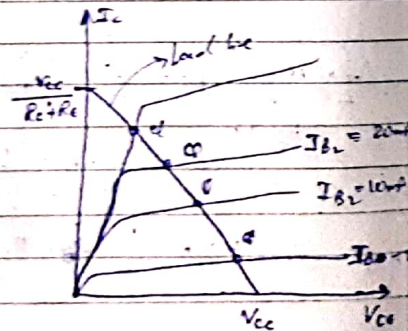 Ic
Load line
Vcc
Rc+RE
Q
Q
Q
Q
IB2 = 20m
IB2 = 10mA
Vcc
VCE